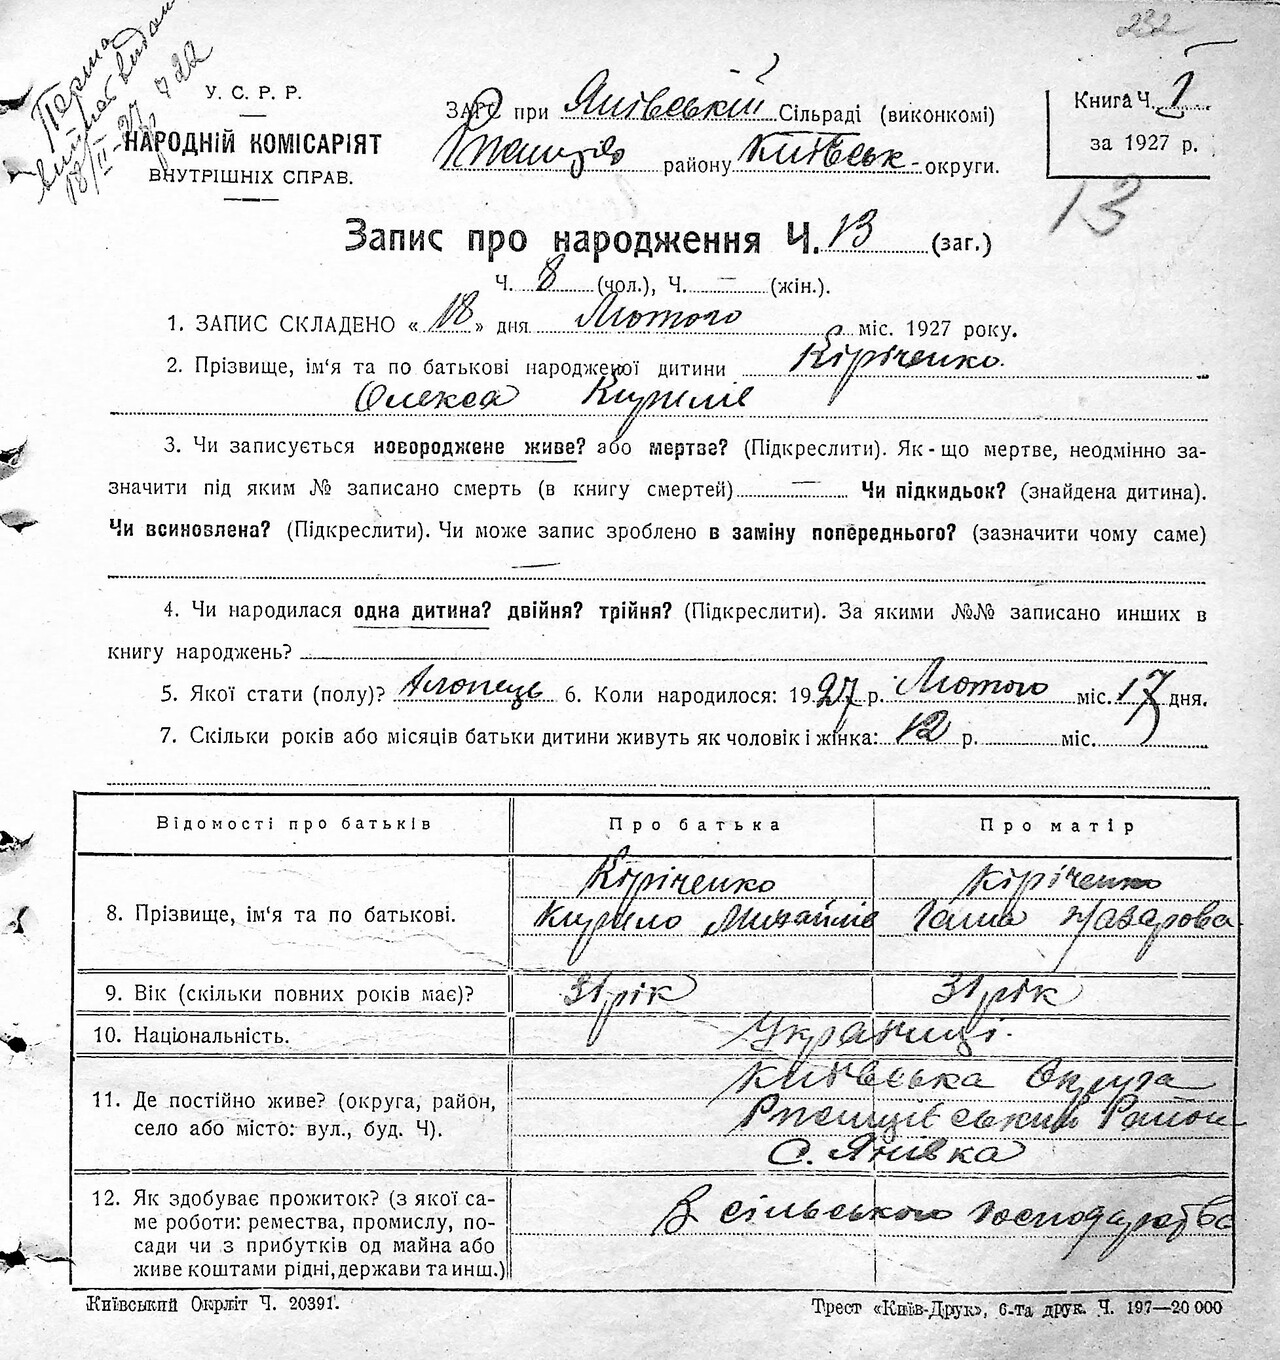 232
Перша
виписка видан
18/II-27 р № 22
У. С. Р. Р.
НАРОДНІЙ КОМІСАРІЯТ
ВНУТРІШНІХ СПРАВ.
ЗАГС при Янівській Сільраді (виконкомі)
Ржищів району Київськ округи.
Книга Ч. 1
за 1927 р.
13
Запис про народження Ч. 13 (заг.)
Ч. 8 (чол.), Ч. — (жін.).
1. ЗАПИС СКЛАДЕНО « 18 » дня Лютого міс. 1927 року.
2. Прізвище, ім'я та по батькові народженої дитини Кіріченко.
Олекса Кирилів
3. Чи записується новороджене живе? або мертве? (Підкреслити). Як-що мертве, неодмінно за-
значити під яким № записано смерть (в книгу смертей) — Чи підкидьок? (знайдена дитина).
Чи всиновлена? (Підкреслити). Чи може запис зроблено в заміну попереднього? (зазначити чому саме)
—
4. Чи народилася одна дитина? двійня? трійня? (Підкреслити). За якими №№ записано инших в
книгу народжень?
5. Якої стати (полу)? Хлопець 6. Коли народилося: 1927 р. Лютого міс. 17 дня.
7. Скільки років або місяців батьки дитини живуть як чоловік і жінка: 12 р. міс.
Відомості про батьків Про батька Про матір
8. Прізвище, ім'я та по батькові.
Кіріченко Кіріченко
Кирило Михайлів Ганна Назарова
9. Вік (скільки повних років має)? 31 рік 31 рік
10. Національність. Українці.
11. Де постійно живе? (округа, район,
село або місто: вул., буд. Ч).
Київська Округа
Ржищівський Район
С. Янівка
12. Як здобуває прожиток? (з якої са-
ме роботи: ремества, промислу, по-
сади чи з прибутків од майна або
живе коштами рідні, держави та инш.)
З сільського господарства
Київський Окрліт Ч. 20391.
Трест «Київ-Друк», 6-та друк. Ч. 197—20 000